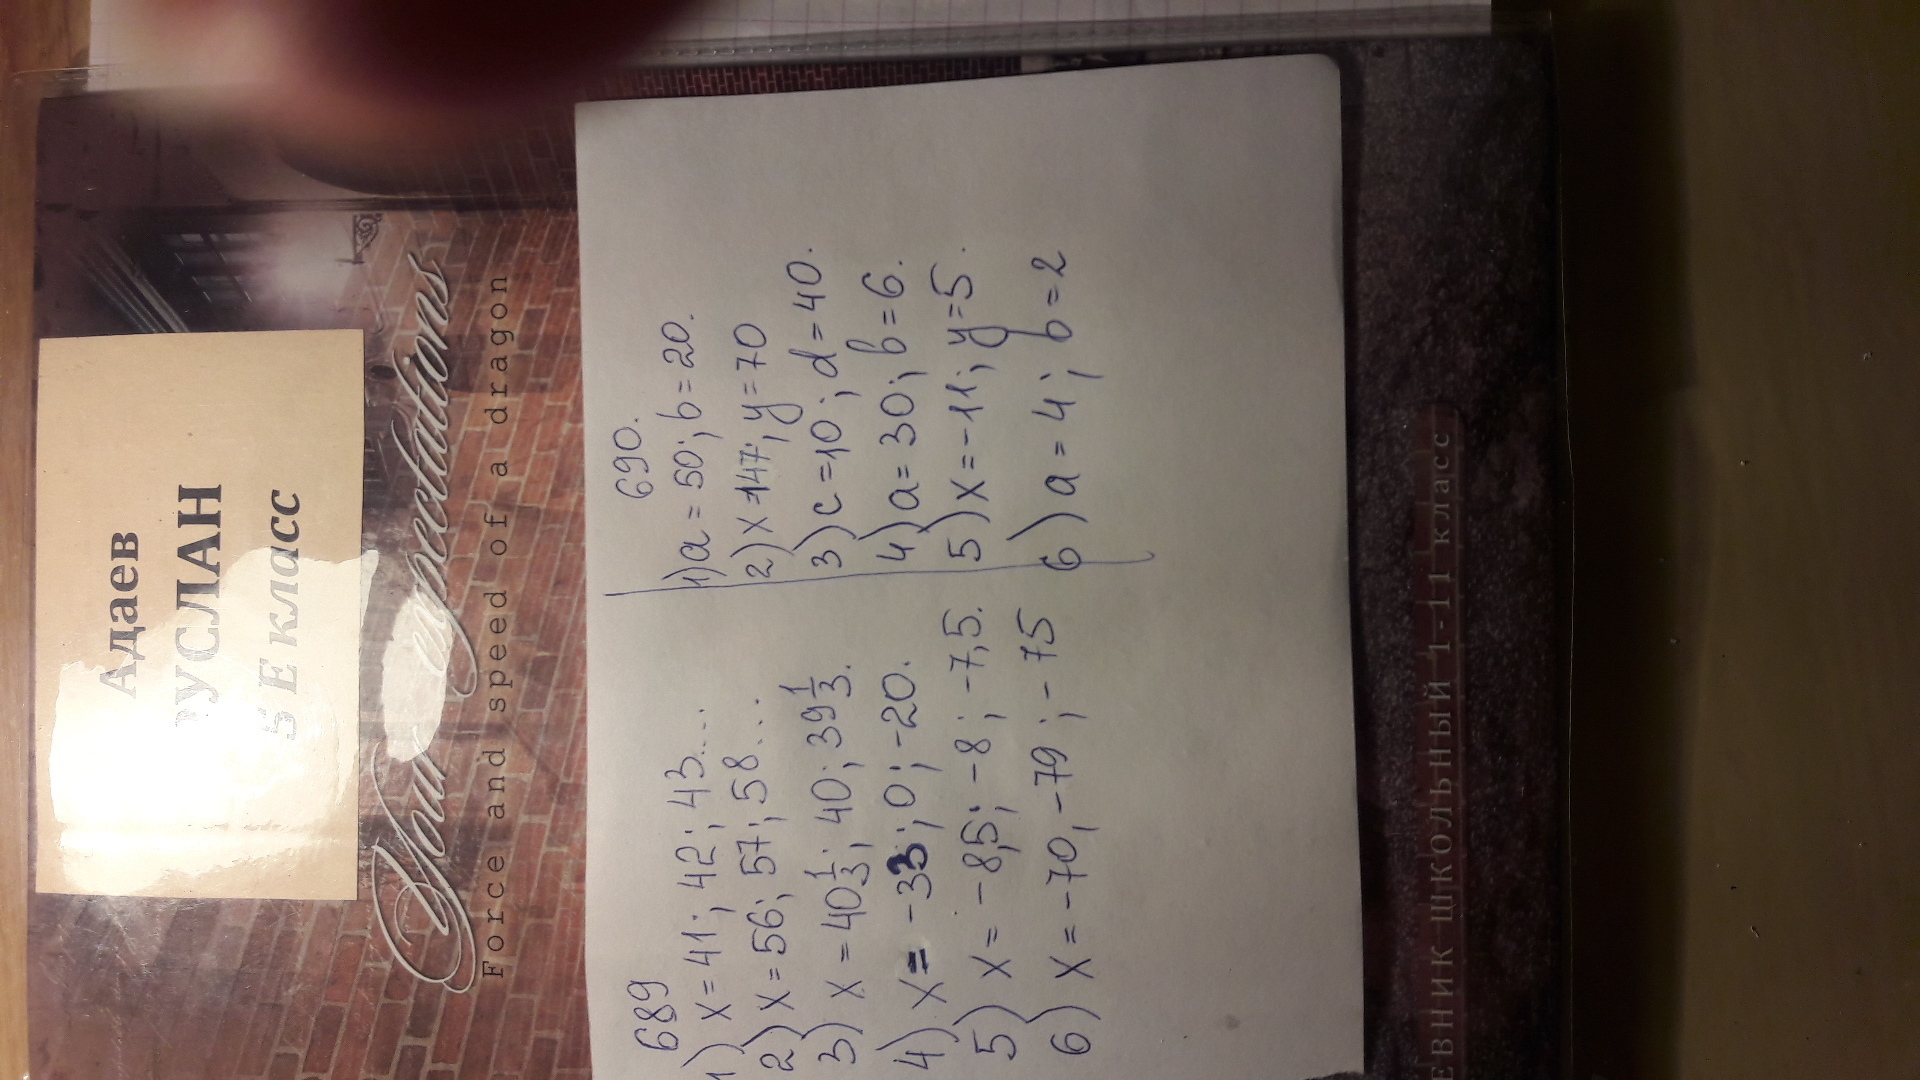 Адаев
РУСЛАН
5 Е класс
Your expectations
Force and speed of a dragon
689
1) x = 41; 42; 43....
2) x = 56; 57; 58...
3) x = 40 1/3; 40; 39 1/3.
4) x = -33; 0; -20.
5) x = -8,5; -8; -7,5.
6) x = -70, -79; -75
690.
1) a = 50; b = 20.
2) x = 147; y = 70
3) c = 10; d = 40.
4) a = 30; b = 6.
5) x = -11; y = 5.
6) a = 4; b = 2
ЕВНИК ШКОЛЬНЫЙ 1-11 класс